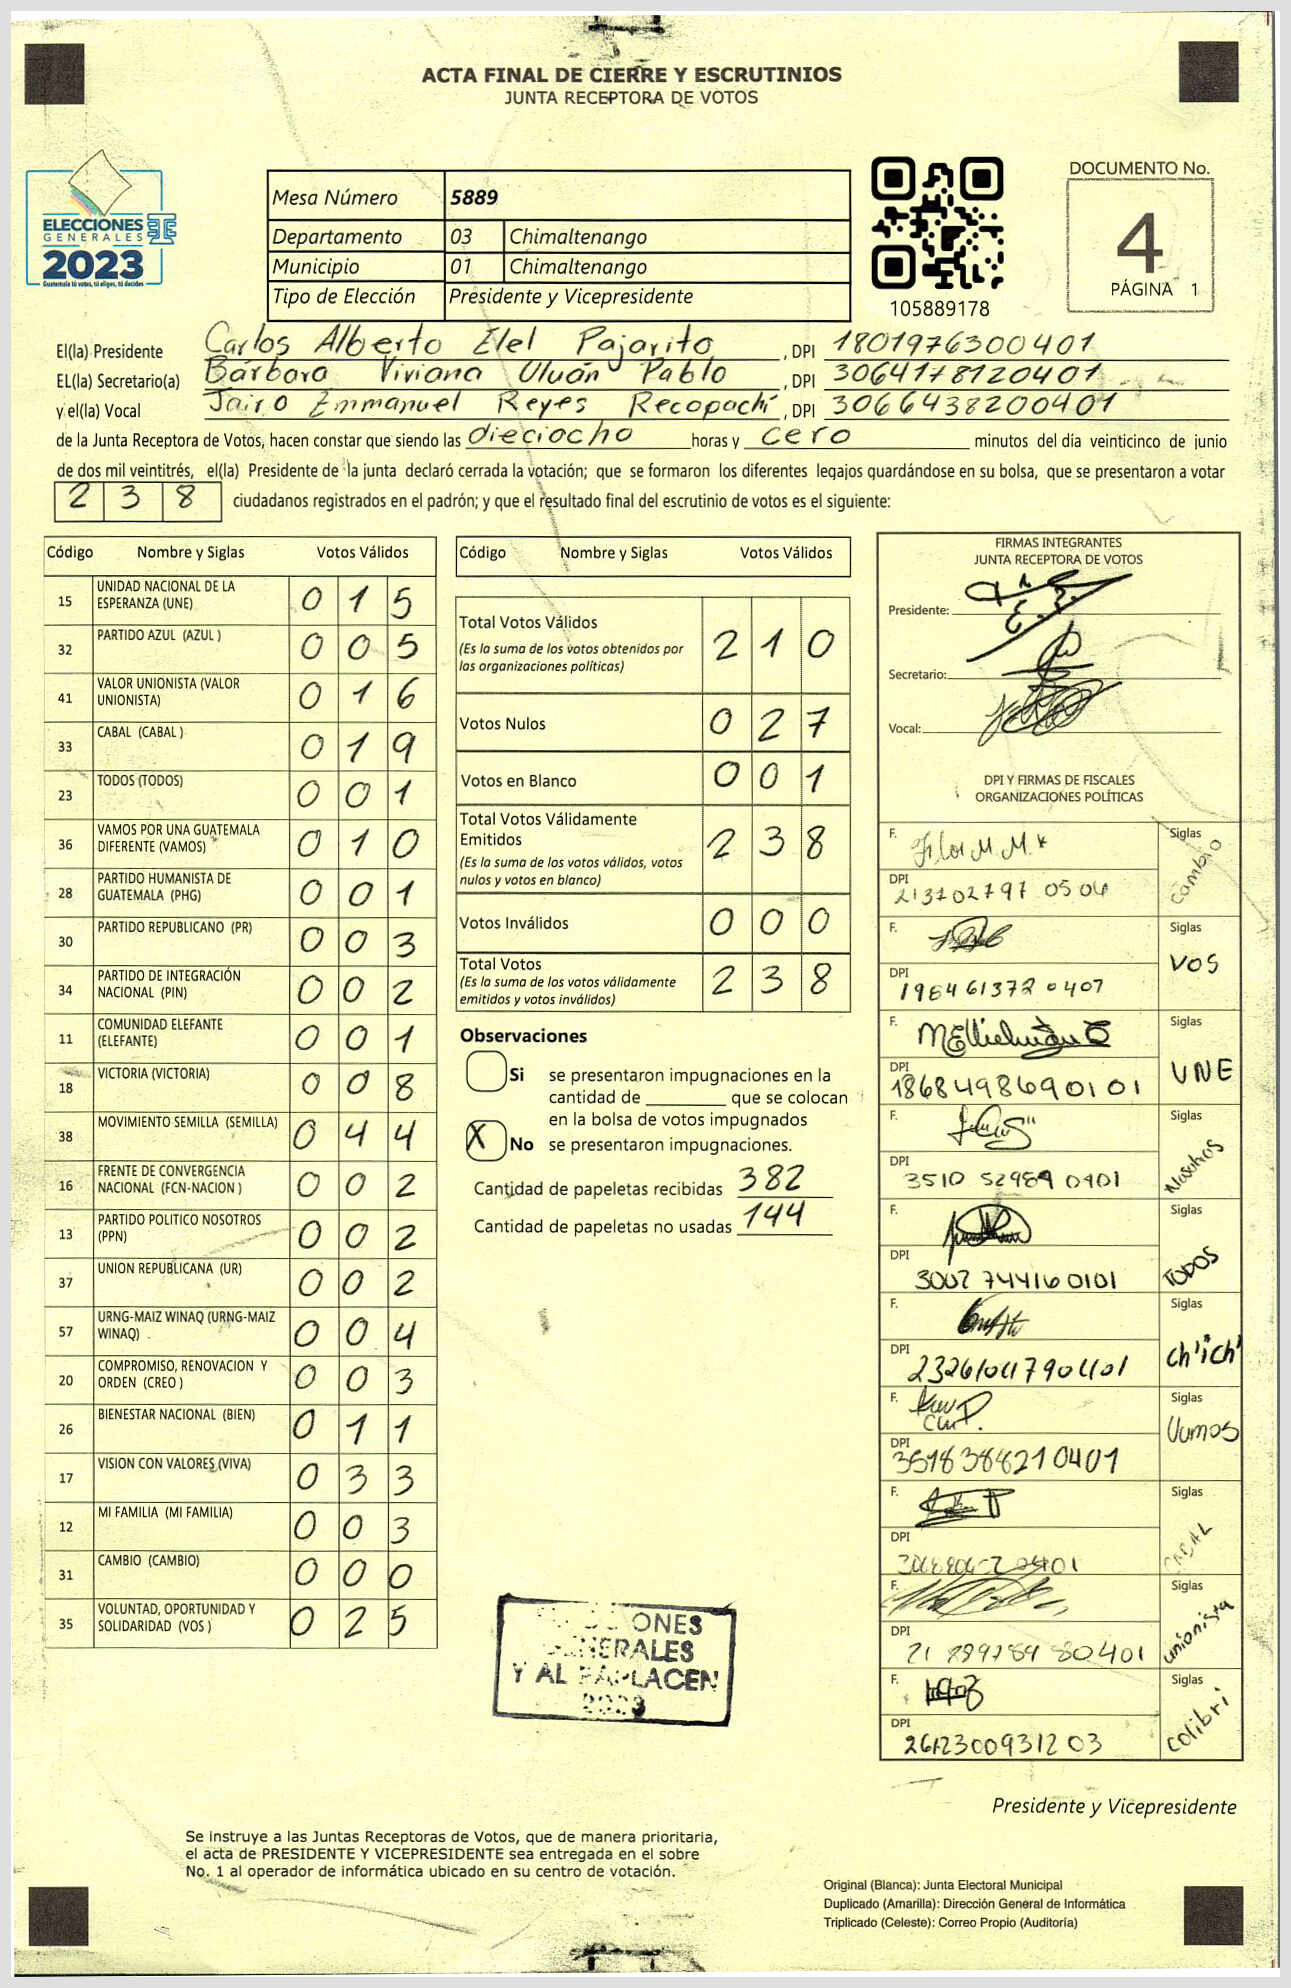 ACTA FINAL DE CIERRE Y ESCRUTINIOS
JUNTA RECEPTORA DE VOTOS
ELECCIONES
GENERALES
2023
Guatemala tú votas, tú eliges, tú decides
Mesa Número 5889
Departamento 03 Chimaltenango
Municipio 01 Chimaltenango
Tipo de Elección Presidente y Vicepresidente
105889178
DOCUMENTO No.
4
PÁGINA 1
El(la) Presidente Carlos Alberto Elel Pajarito , DPI 1801976300401
EL(la) Secretario(a) Bárbara Viviana Uluán Pablo , DPI 3064178120401
y el(la) Vocal Jairo Emmanuel Reyes Recopachí , DPI 3066438200401
de la Junta Receptora de Votos, hacen constar que siendo las dieciocho horas y cero minutos del día veinticinco de junio
de dos mil veintitrés, el(la) Presidente de la junta declaró cerrada la votación; que se formaron los diferentes legajos guardándose en su bolsa, que se presentaron a votar
238 ciudadanos registrados en el padrón; y que el resultado final del escrutinio de votos es el siguiente:
Código Nombre y Siglas Votos Válidos
15 UNIDAD NACIONAL DE LA ESPERANZA (UNE) 015
32 PARTIDO AZUL (AZUL ) 005
41 VALOR UNIONISTA (VALOR UNIONISTA) 016
33 CABAL (CABAL ) 019
23 TODOS (TODOS) 001
36 VAMOS POR UNA GUATEMALA DIFERENTE (VAMOS) 010
28 PARTIDO HUMANISTA DE GUATEMALA (PHG) 001
30 PARTIDO REPUBLICANO (PR) 003
34 PARTIDO DE INTEGRACIÓN NACIONAL (PIN) 002
11 COMUNIDAD ELEFANTE (ELEFANTE) 001
18 VICTORIA (VICTORIA) 008
38 MOVIMIENTO SEMILLA (SEMILLA) 044
16 FRENTE DE CONVERGENCIA NACIONAL (FCN-NACION ) 002
13 PARTIDO POLITICO NOSOTROS (PPN) 002
37 UNION REPUBLICANA (UR) 002
57 URNG-MAIZ WINAQ (URNG-MAIZ WINAQ) 004
20 COMPROMISO, RENOVACION Y ORDEN (CREO ) 003
26 BIENESTAR NACIONAL (BIEN) 011
17 VISION CON VALORES (VIVA) 033
12 MI FAMILIA (MI FAMILIA) 003
31 CAMBIO (CAMBIO) 000
35 VOLUNTAD, OPORTUNIDAD Y SOLIDARIDAD (VOS ) 025
Código Nombre y Siglas Votos Válidos
Total Votos Válidos 210
(Es la suma de los votos obtenidos por
las organizaciones políticas)
Votos Nulos 027
Votos en Blanco 001
Total Votos Válidamente
Emitidos 238
(Es la suma de los votos válidos, votos
nulos y votos en blanco)
Votos Inválidos 000
Total Votos 238
(Es la suma de los votos válidamente
emitidos y votos inválidos)
Observaciones
Si se presentaron impugnaciones en la
cantidad de ________ que se colocan
en la bolsa de votos impugnados
X No se presentaron impugnaciones.
Cantidad de papeletas recibidas 382
Cantidad de papeletas no usadas 144
ONES
GENERALES
Y AL PARLACEN
2023
FIRMAS INTEGRANTES
JUNTA RECEPTORA DE VOTOS
Presidente:
Secretario:
Vocal:
DPI Y FIRMAS DE FISCALES
ORGANIZACIONES POLÍTICAS
F. Siglas Cambio
DPI 213702797 0506
F. Siglas VOS
DPI 198461372 0407
F. Siglas UNE
DPI 1868498690101
F. Siglas Nosotros
DPI 3510 52989 0401
F. Siglas TODOS
DPI 3002 744160101
F. Siglas ch'ich'
DPI
F. Siglas Vamos
DPI 3518388210401
F. Siglas CABAL
DPI
F. Siglas unionista
DPI
F. Siglas colibri
DPI
Presidente y Vicepresidente
Se instruye a las Juntas Receptoras de Votos, que de manera prioritaria,
el acta de PRESIDENTE Y VICEPRESIDENTE sea entregada en el sobre
No. 1 al operador de informática ubicado en su centro de votación.
Original (Blanca): Junta Electoral Municipal
Duplicado (Amarilla): Dirección General de Informática
Triplicado (Celeste): Correo Propio (Auditoría)